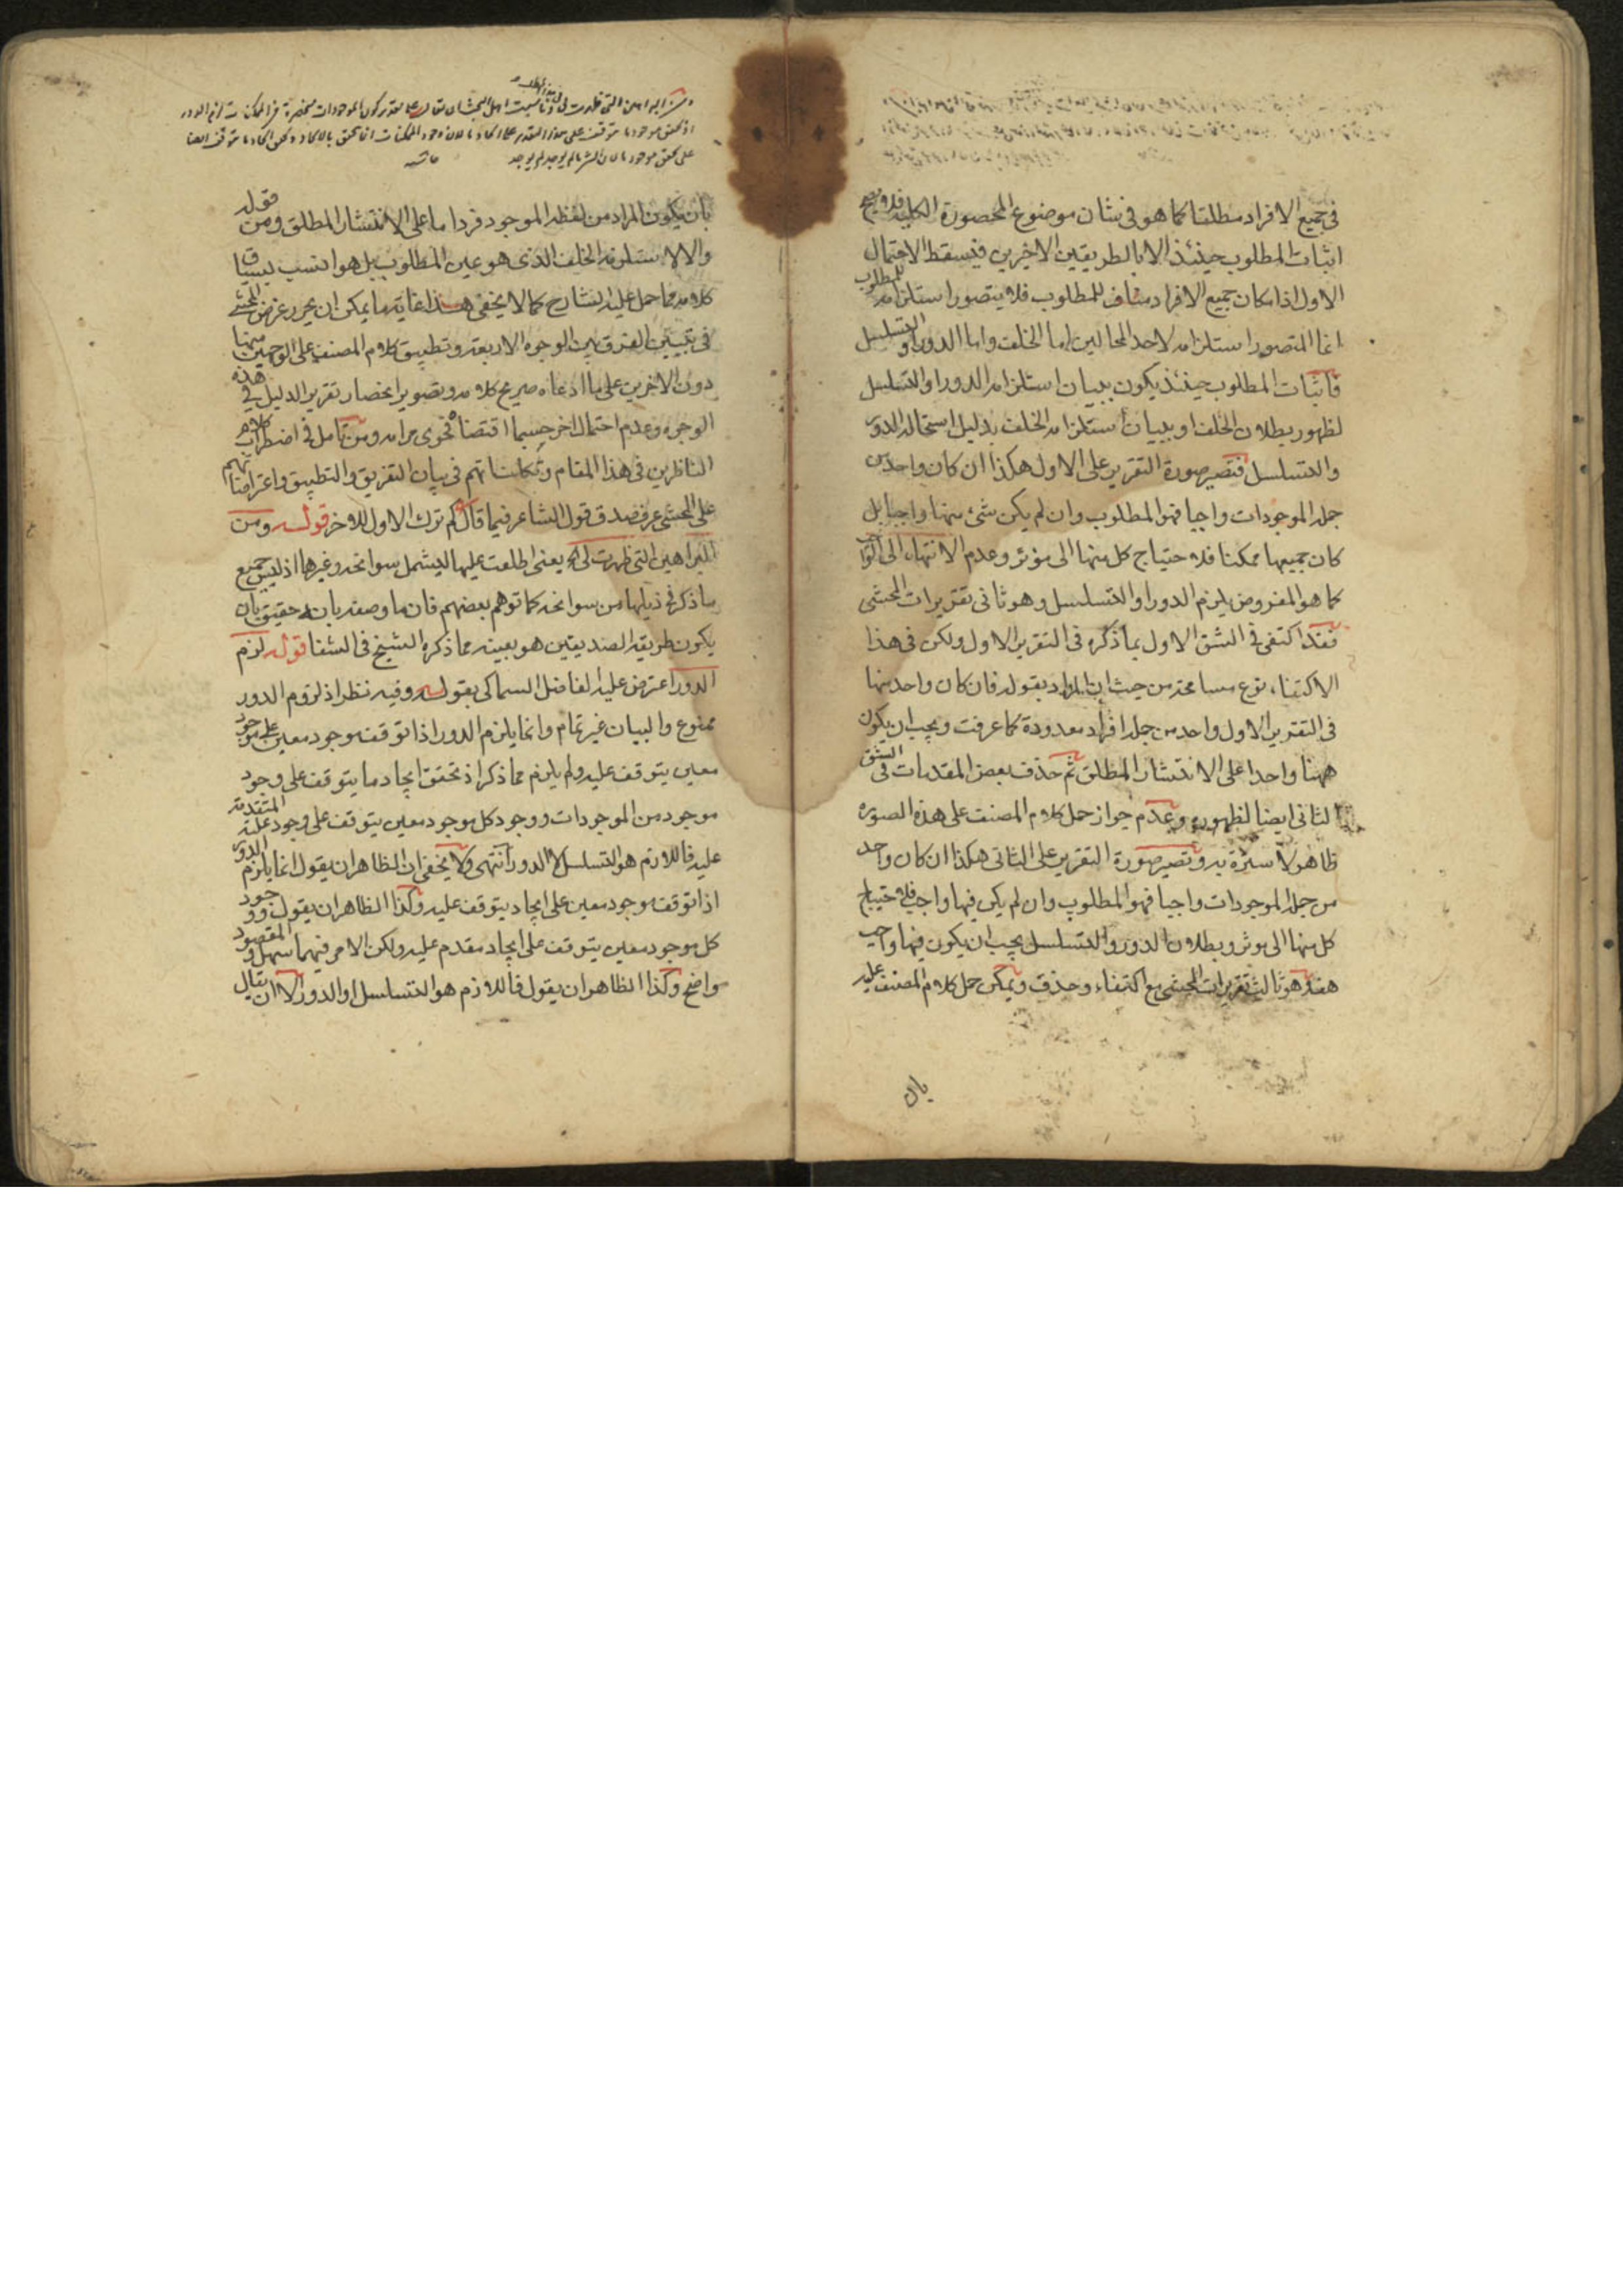 في جميع الافراد مطلقا كما هو في شان موضوع المحصورة الكلية فلا يصح
اثبات المطلوب حينئذ الا بالطريقين الاخيرين فيسقط الاحتمال
الاول اذ امكان جميع الافراد مناف للمطلوب فلا يتصور استلزامه للمطلوب
انما المتصور استلزامه لاحد المحالين اما الخلف واما الدور او التسلسل
فاثبات المطلوب حينئذ يكون ببيان استلزامه الدور او التسلسل
لظهور بطلان الخلف او ببيان استلزامه الخلف بدليل استحالة الدور
والتسلسل فتصير صورة التقرير على الاول هكذا ان كان واحد من
جملة الموجودات واجبا فهو المطلوب وان لم يكن شئ منها واجبا بل
كان جميعها ممكنا فلاحتياج كل منها الى مؤثر وعدم الانتهاء الى الواجب
كما هو المفروض يلزم الدور او التسلسل وهو ثاني تقريرات المحشى
فقد اكتفى في الشق الاول بما ذكره في التقرير الاول ولكن في هذا
الاكتفاء نوع مسامحة من حيث ان المراد بقوله فان كان واحد منها
في التقرير الاول واحد من جملة افراد معدودة كما عرفت ويجب ان يكون
ههنا واحدا على الانتشار المطلق ثم حذف بعض المقدمات في الشق
الثاني ايضا لظهوره وعدم جواز حمل كلام المصنف على هذه الصورة
ظاهر لا سترة به وتصير صورة التقرير على الثاني هكذا ان كان واحد
من جملة الموجودات واجبا فهو المطلوب وان لم يكن فيها واجب فلاحتياج
كل منها الى مؤثر وبطلان الدور والتسلسل يجب ان يكون فيها واجب
هف هو ثالث تقريرات المحشى مع اكتفاء وحذف ويمكن حمل كلام المصنف عليه
بان
ومن البراهين التي ظهرت لي
على تقدير كون الموجودات منحصرة في الممكنات لزم الدور
اذ تحقق موجود ما يتوقف على هذا التقدير على ايجاد ما لان وجود الممكنات انما يتحقق بالايجاد وتحقق ايجاد ما يتوقف ايضا
على تحقق موجود ما لان الشئ ما لم يوجد لم يوجد حاشية
بان يكون المراد من لفظه الموجود فردا ما على الانتشار المطلق ومن قوله
والا لاستلزمه الخلف الذي هو عين المطلوب بل هو انسب بسياق
كلامه مما حمل عليه الشارح كما لا يخفى هذا غاية ما يمكن ان يحرر غرض المحشى
في تبيين الفرق بين الوجوه الاربعة وتطبيق كلام المصنف على الوجهين منها
دون الاخرين على ما ادعاه صريح كلامه وتصوير انحصار تقرير الدليل في هذه
الوجوه وعدم احتمال اخر حسبما اقتضاه فحوى مرامه ومن تامل في اضطراب كلام
الناظرين في هذا المقام وتكلفاتهم في بيان التفريق والتطبيق واعتراضاتهم
على المحشى عرف صدق قول الشاعر فيما قال كم ترك الاول للاخر قوله ومن
البراهين التي ظهرت لى اه يعنى اطلعت عليها ليشمل سوانحه وغيرها اذ ليس جميع
ما ذكر في ذيلها من سوانحه كما توهم بعضهم فان ما وصفه بانه حقيق بان
يكون طريقة الصديقين هو بعينه مما ذكره الشيخ في الشفا قوله لزم
الدور اعترض عليه الفاضل السماكي بقوله وفيه نظر اذ لزوم الدور
ممنوع والبيان غير تمام وانما يلزم الدور اذا توقف موجود معين على موجود
معين يتوقف عليه ولم يلزم مما ذكر اذ تحقق ايجاد ما يتوقف على وجود
موجود من الموجودات ووجود كل موجود معين يتوقف على وجود علته المتقدمة
عليه فاللازم هو التسلسل لا الدور انتهى ولا يخفى ان الظاهر ان يقول انما يلزم الدور
اذا توقف موجود معين على ايجاد يتوقف عليه وكذا الظاهر ان يقول ووجود
كل موجود معين يتوقف على ايجاد مقدم عليه ولكن الامر فيهما سهل والمقصود
واضح وكذا الظاهر ان يقول فاللازم هو التسلسل او الدور الا ان يقال